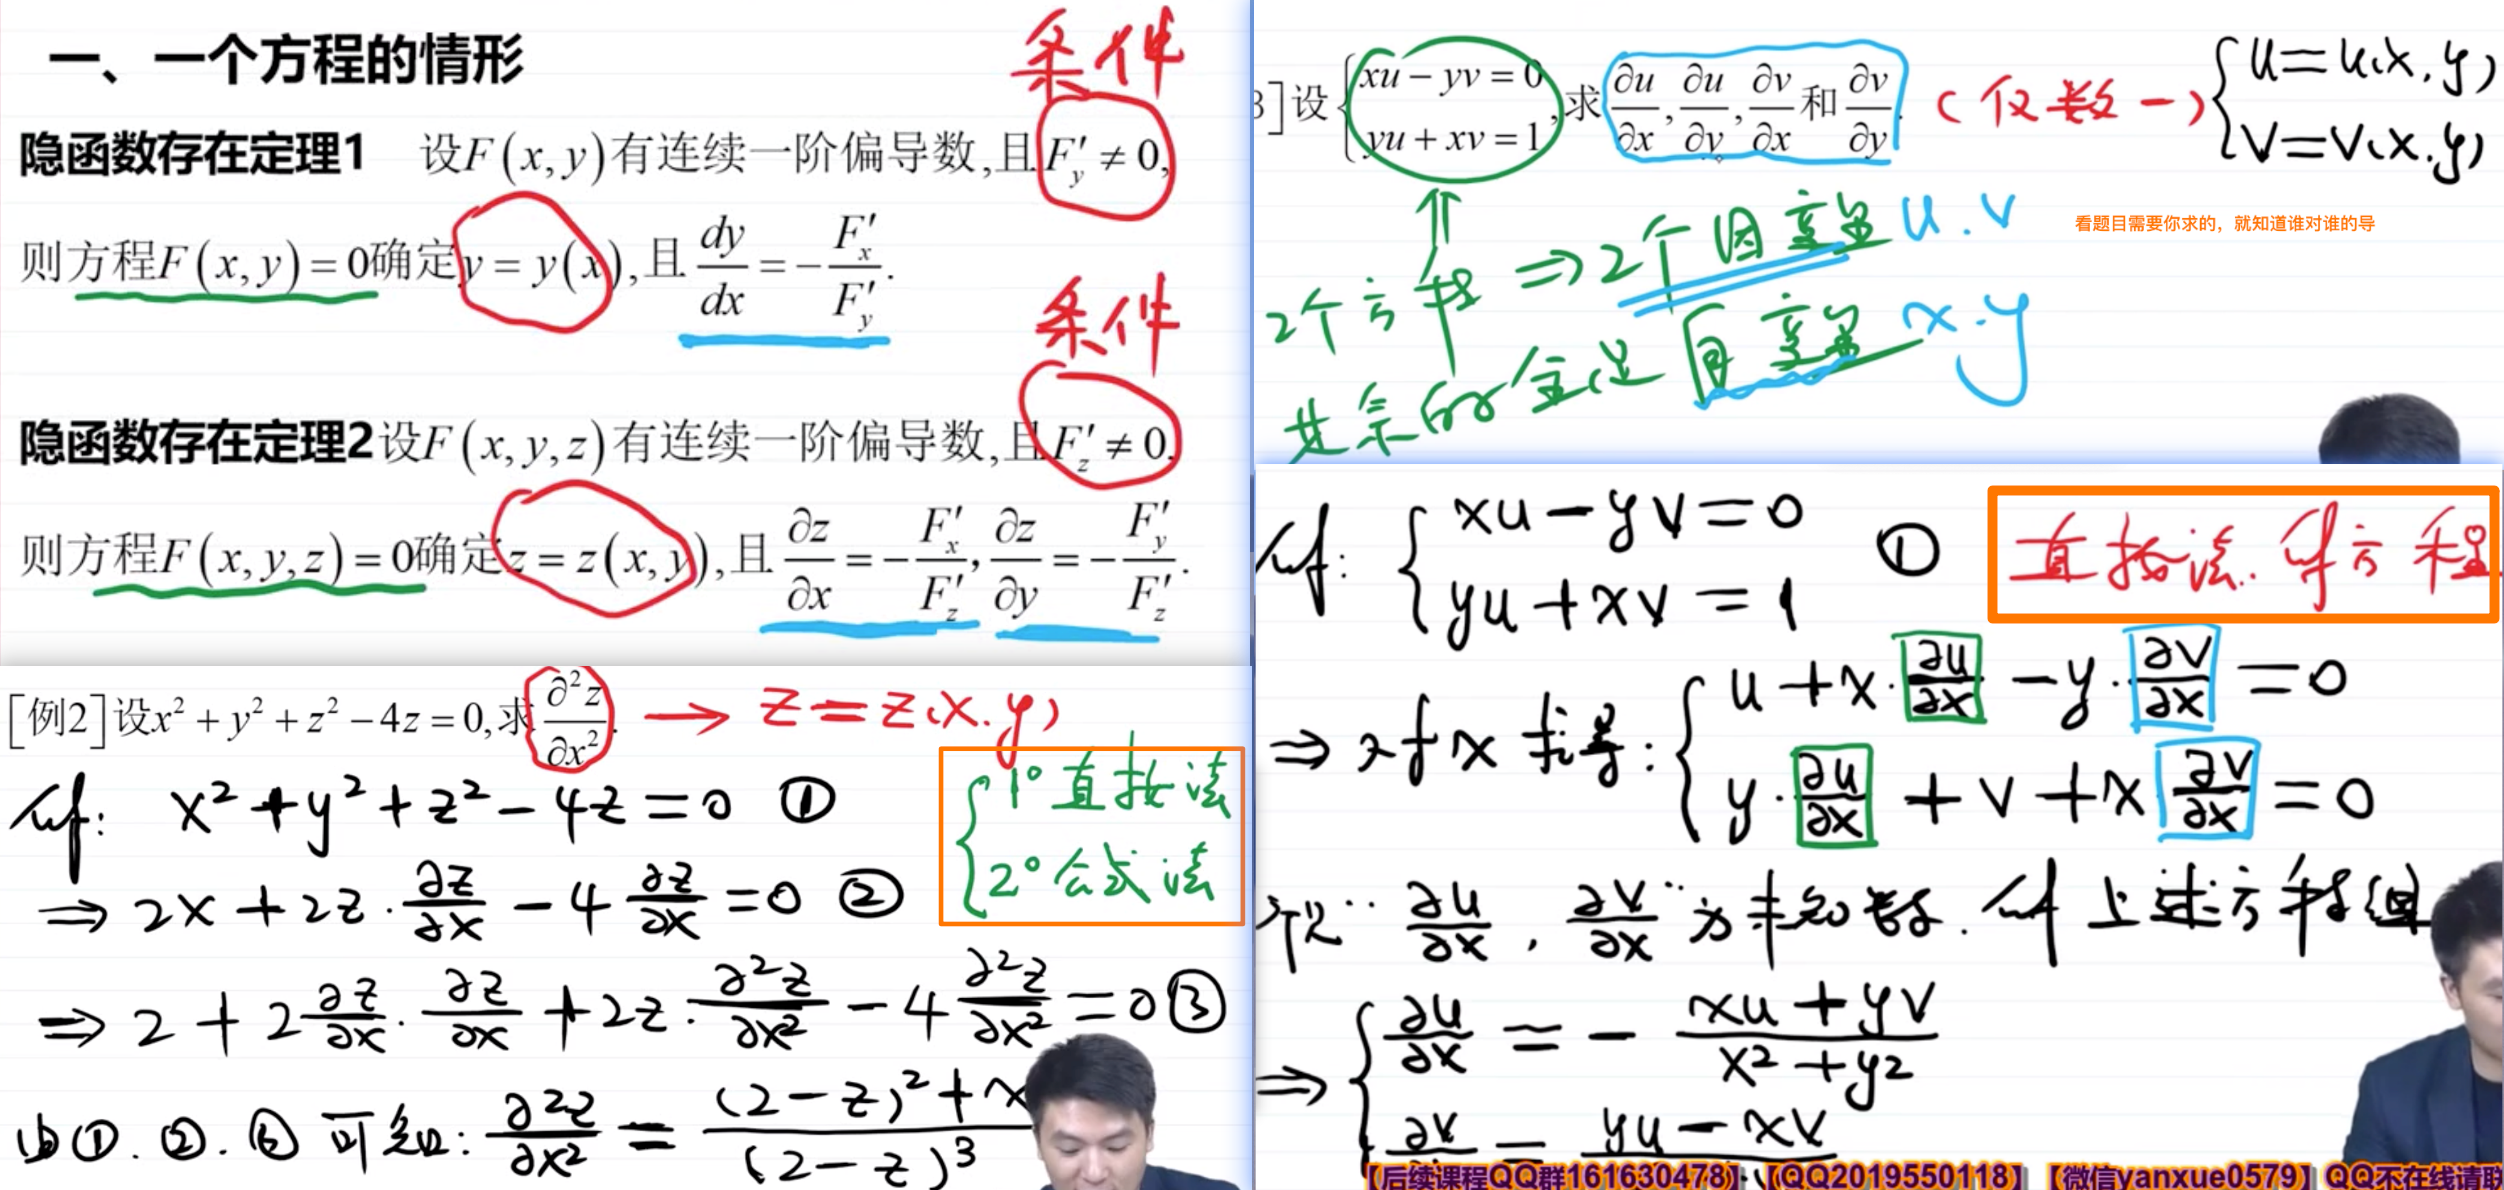 一、一个方程的情形
条件
隐函数存在定理1 设F(x,y)有连续一阶偏导数,且F′_y ≠ 0,
则方程F(x,y)=0确定y=y(x),且 dy/dx = −F′_x/F′_y.
条件
隐函数存在定理2设F(x,y,z)有连续一阶偏导数,且F′_z ≠ 0,
则方程F(x,y,z)=0确定z=z(x,y),且 ∂z/∂x = −F′_x/F′_z, ∂z/∂y = −F′_y/F′_z.
[例2]设x²+y²+z²−4z=0,求∂²z/∂x². → z=z(x.y)
解: x²+y²+z²−4z=0 ①
{1° 直接法
2° 公式法
⇒ 2x+2z·∂z/∂x−4∂z/∂x=0 ②
⇒ 2+2∂z/∂x·∂z/∂x+2z·∂²z/∂x²−4∂²z/∂x²=0 ③
由①.②.③可知: ∂²z/∂x² = (2−z)²+x/(2−z)³
3]设{xu−yv=0, yu+xv=1,求∂u/∂x,∂u/∂y,∂v/∂x和∂v/∂y. (仅数一) {u=u(x.y) v=v(x.y)
看题目需要你求的，就知道谁对谁的导
2个方程 ⇒ 2个因变量 u.v
其余的全是自变量 x.y
解: {xu−yv=0
yu+xv=1 ①
直接法. 解方程
⇒ 对x求导: {u+x·∂u/∂x−y·∂v/∂x=0
y·∂u/∂x+v+x∂v/∂x=0
视"∂u/∂x, ∂v/∂x"为未知数. 解上述方程组
⇒ {∂u/∂x = −(xu+yv)/(x²+y²)
∂v = yu−xv
【后续课程QQ群161630478】【QQ2019550118】【微信yanxue0579】QQ不在线请联